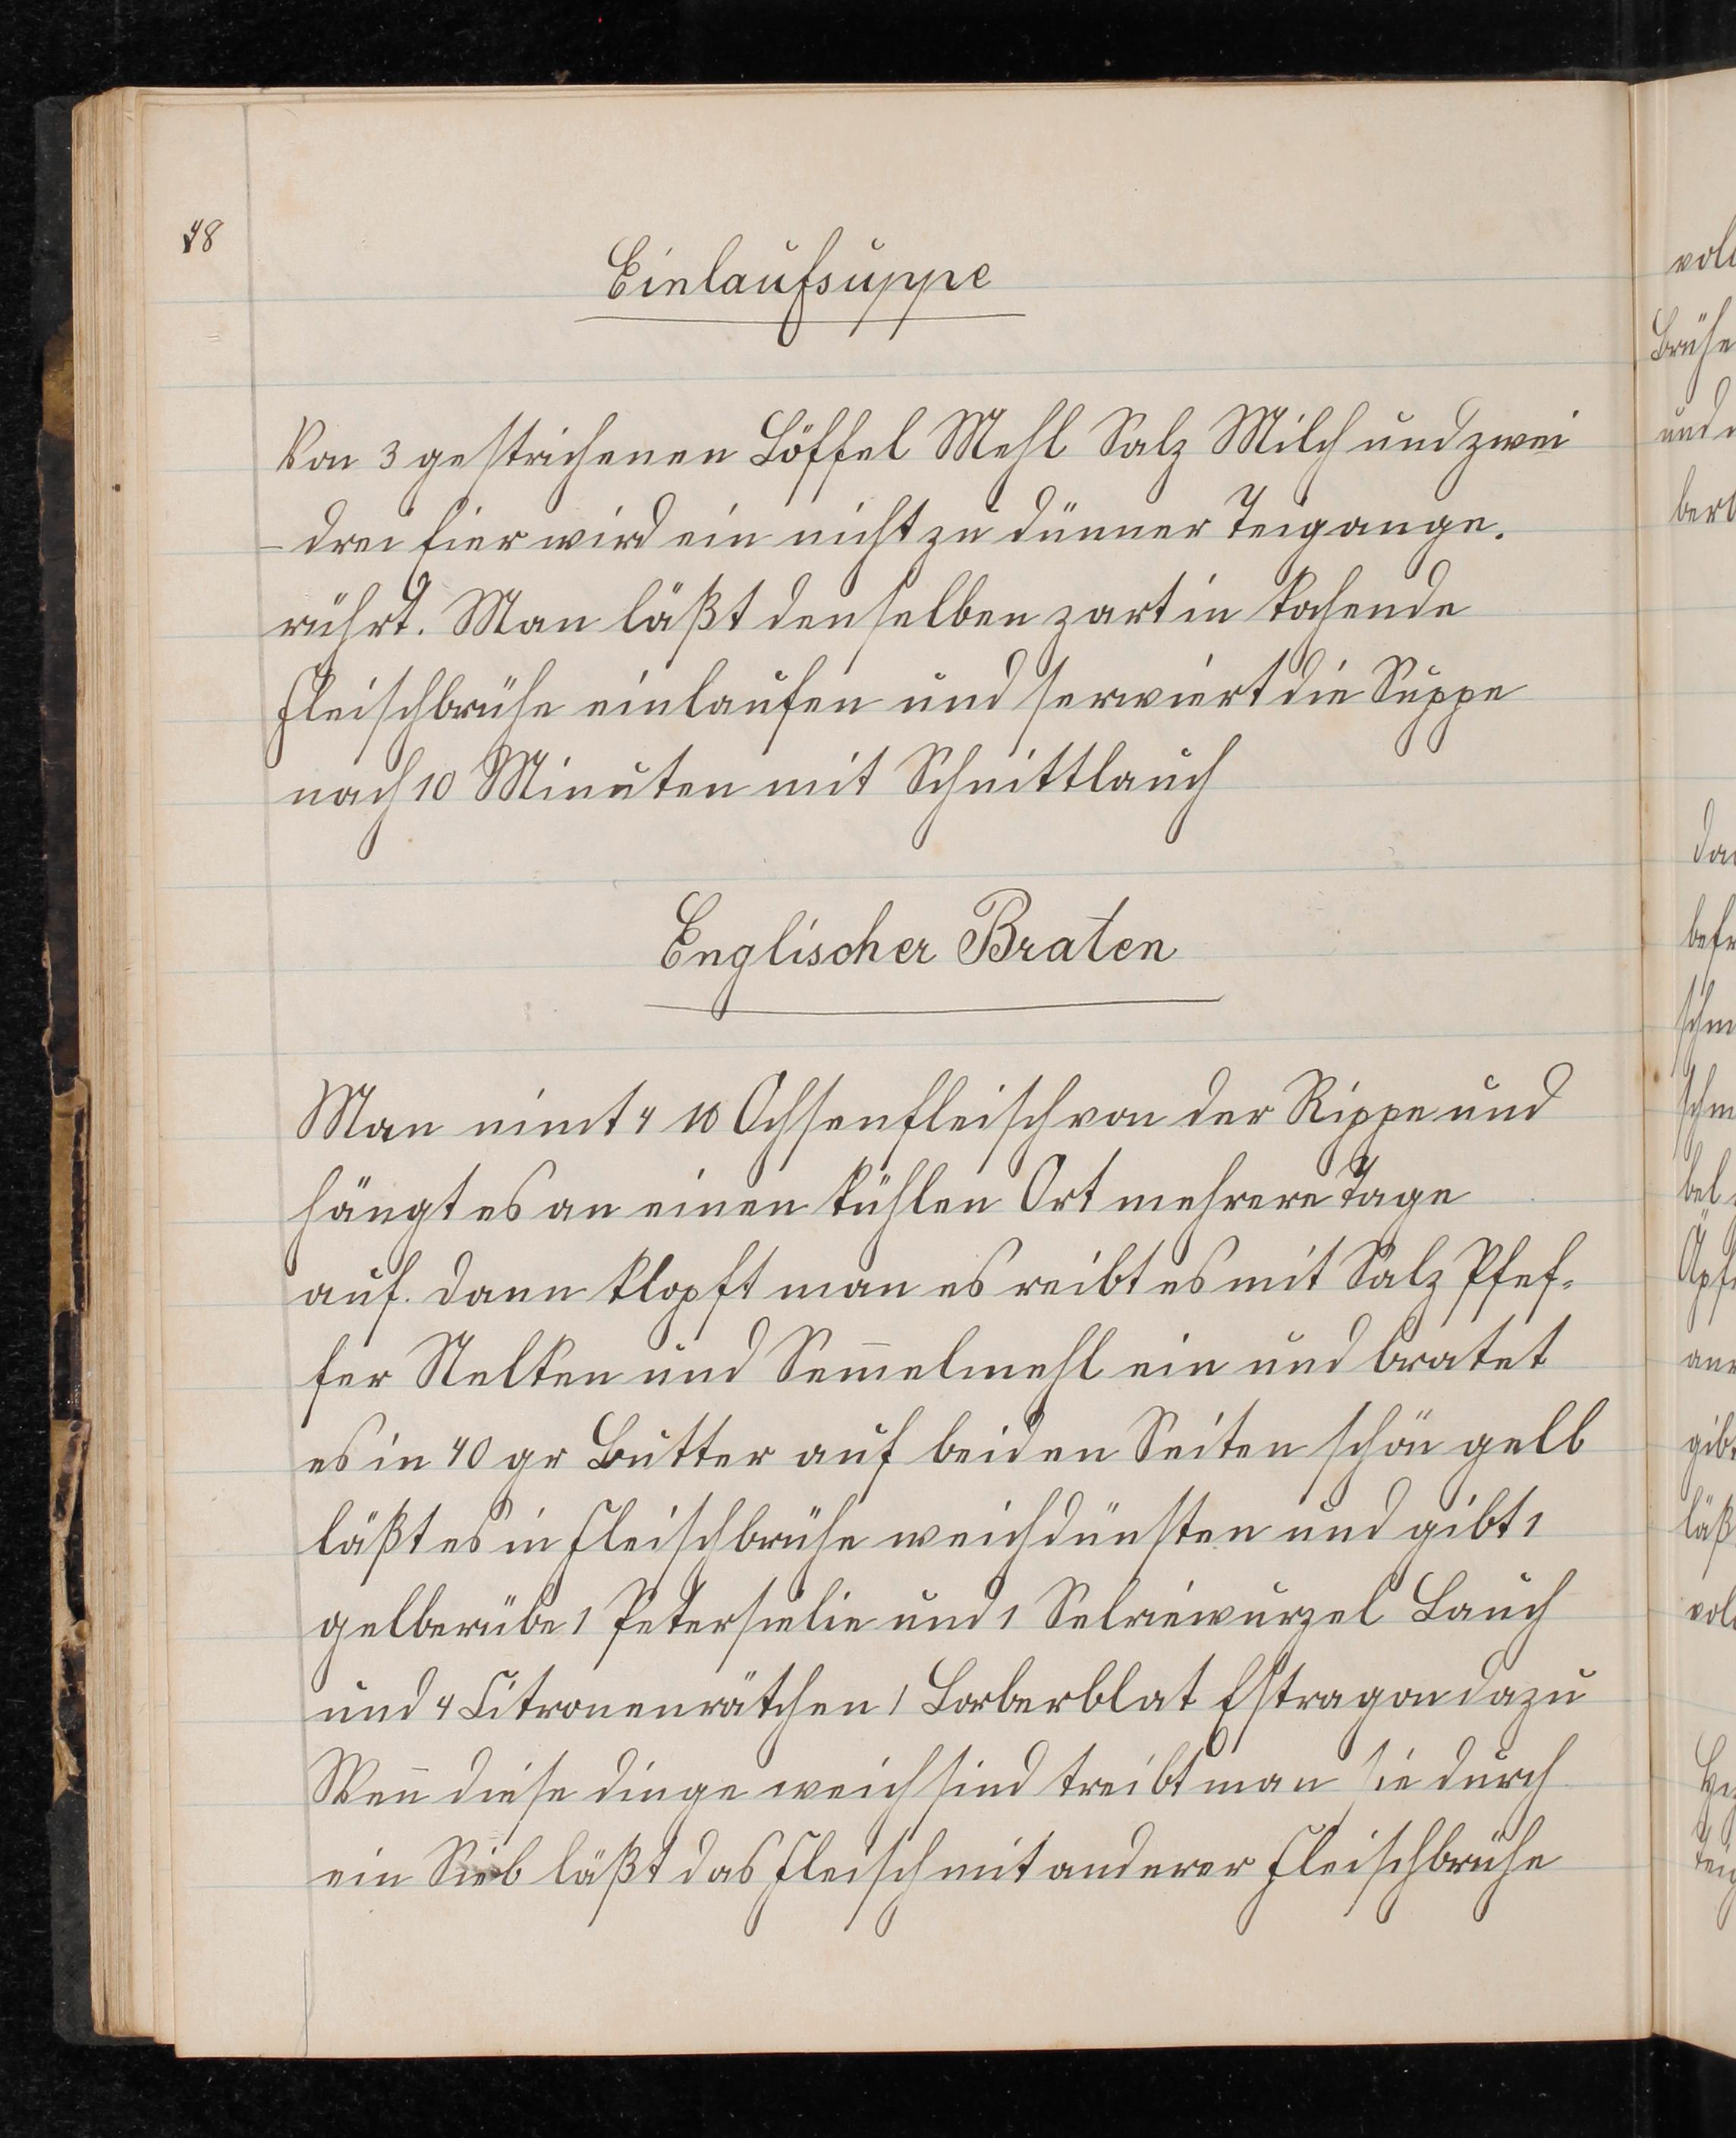 48
Einlaufsuppe
Von 3 gestrichenen Löffel Mehl Salz Milch und zwei
– drei Eier wird ein nicht zu dünner Teig ange-
rührt. Man läßt denselben zart in kochende
Fleischbrühe einlaufen und serwiert die Suppe
nach 10 Minuten mit Schnittlauch
Englischer Braten
Man nimt 4 ℔ Ochsenfleisch von der Rippe und
hängt es an einen kühlen Ort mehrere Tage
auf. dann klopft man es reibt es mit Salz Pfef-
fer Nelken und Sem̄elmehl ein und bratet
es in 40 gr Butter auf beiden Seiten schön gelb
läßt es in Fleischbrühe weichdünsten und gibt 1
gelberübe 1 Petersielie und 1 Selriewurzel Lauch
und 4 Citronenrätchen 1 Lorberblat Estragon dazu
Wen̄ diese dinge weich sind treibt man sie durch
ein Sieb läßt das Fleisch mit anderer Fleischbrühe